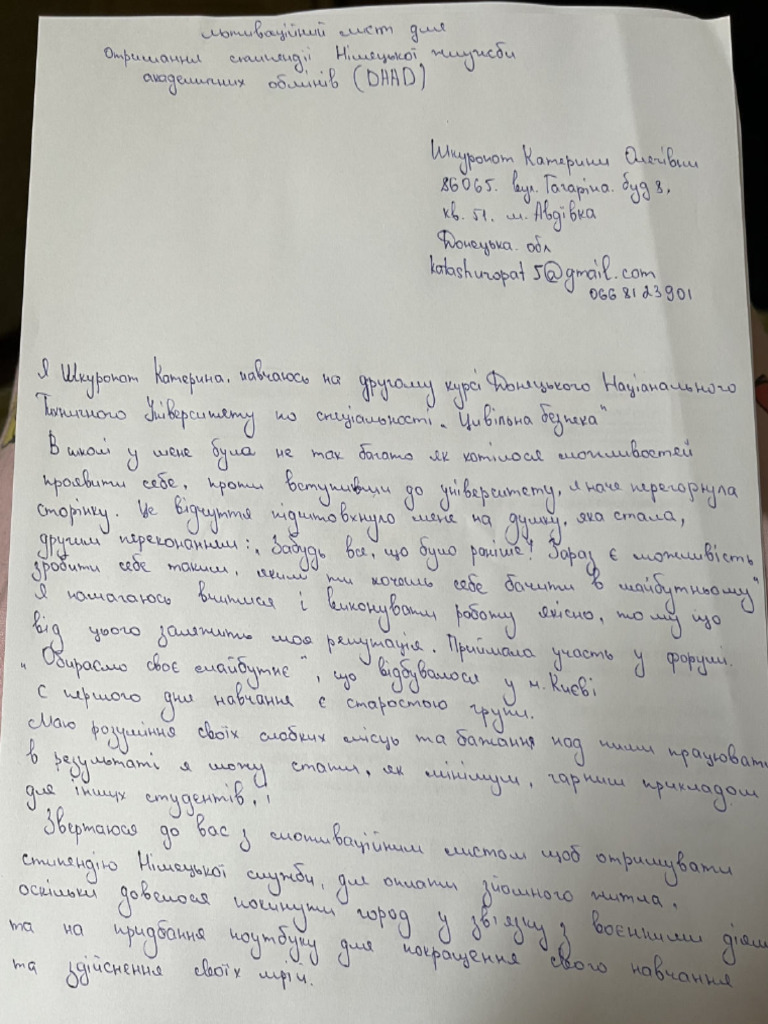 мотиваційний лист для
Отримання стипендії Німецької служби
академічних обмінів (DAAD)
Шкуропат Катерини Олегівни
86065. вул. Гагаріна. буд 8,
кв. 51. м. Авдївка
Донецька. обл
katashuropat5@gmail.com
066 81 23 901
Я Шкуропат Катерина, навчаюсь на другому курсі Донецького Націанального
Технічного Університету по спеціальності „Цивільна безпека"
В школі у мене була не так багато як хотілося можливостей
проявити себе, проти вступивши до університету, я наче перегорнула
сторінку. Це відчуття підштовхнуло мене на думку, яка стала,
другим переконанням: „Забудь все, що було раніше! Зараз є можливість
зробити себе таким, яким ти хочеш себе бачити в майбутньому"
Я намагаюсь вчитися і виконувати роботу якісно, тому що
від цього залежить моя репутація. Приймала участь у форумі.
„Обираємо своє майбутнє", що відбувалося у м. Києві
С першого дня навчання є старостою групи.
Маю розуміння своїх слабких місць та бажання над ними працювати
в результаті я можу стати, як мінімум, гарним прикладом
для інших студентів.
Звертаюся до вас з мотиваційним листом щоб отримувати
стипендію Німецької служби, для оплати зйомного житла,
оскільки довелося покинути город у зв'язку з воєнними діями
та на придбання ноутбуку для покращення свого навчання
та здійснення своїх мрій.